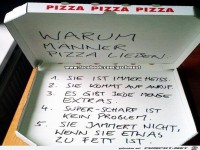 PIZZA PIZZA PIZZA PIZZA
WARUM
MÄNNER
PIZZA LIEBEN:
1. SIE IST IMMER HEISS.
2. SIE KOMMT AUF ANRUF.
3. ES GIBT JEDE MENGE
EXTRAS
4. SUPER-SCHARF IST
KEIN PROBLEM.
5. SIE JAMMERT NICHT,
WENN SIE ETWAS
ZU FETT IST.